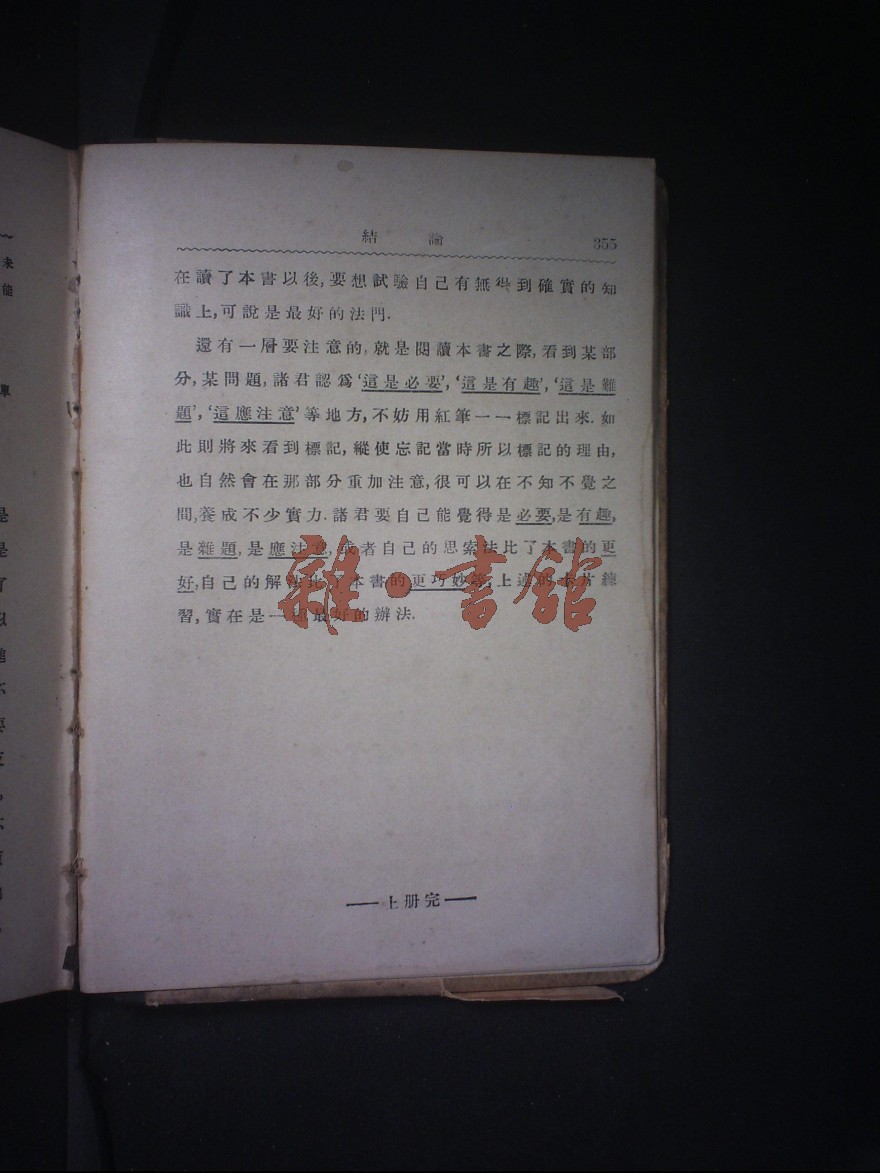 結論 355
在讀了本書以後,要想試驗自己有無得到確實的知
識上,可說是最好的法門.
還有一層要注意的,就是閱讀本書之際,看到某部
分,某問題,諸君認爲‘這是必要’,‘這是有趣’,‘這是難
題’,‘這應注意’等地方,不妨用紅筆一一標記出來.如
此則將來看到標記,縱使忘記當時所以標記的理由,
也自然會在那部分重加注意,很可以在不知不覺之
間,養成不少實力.諸君要自己能覺得是必要,是有趣,
是難題,是應注意,或者自己的思索法比了本書的更
好,自己的解法比了本書的更巧妙等,上述的卡片練
習,實在是一種最好的辦法.
雜·書館
上册完
未
能
單
是
是
了